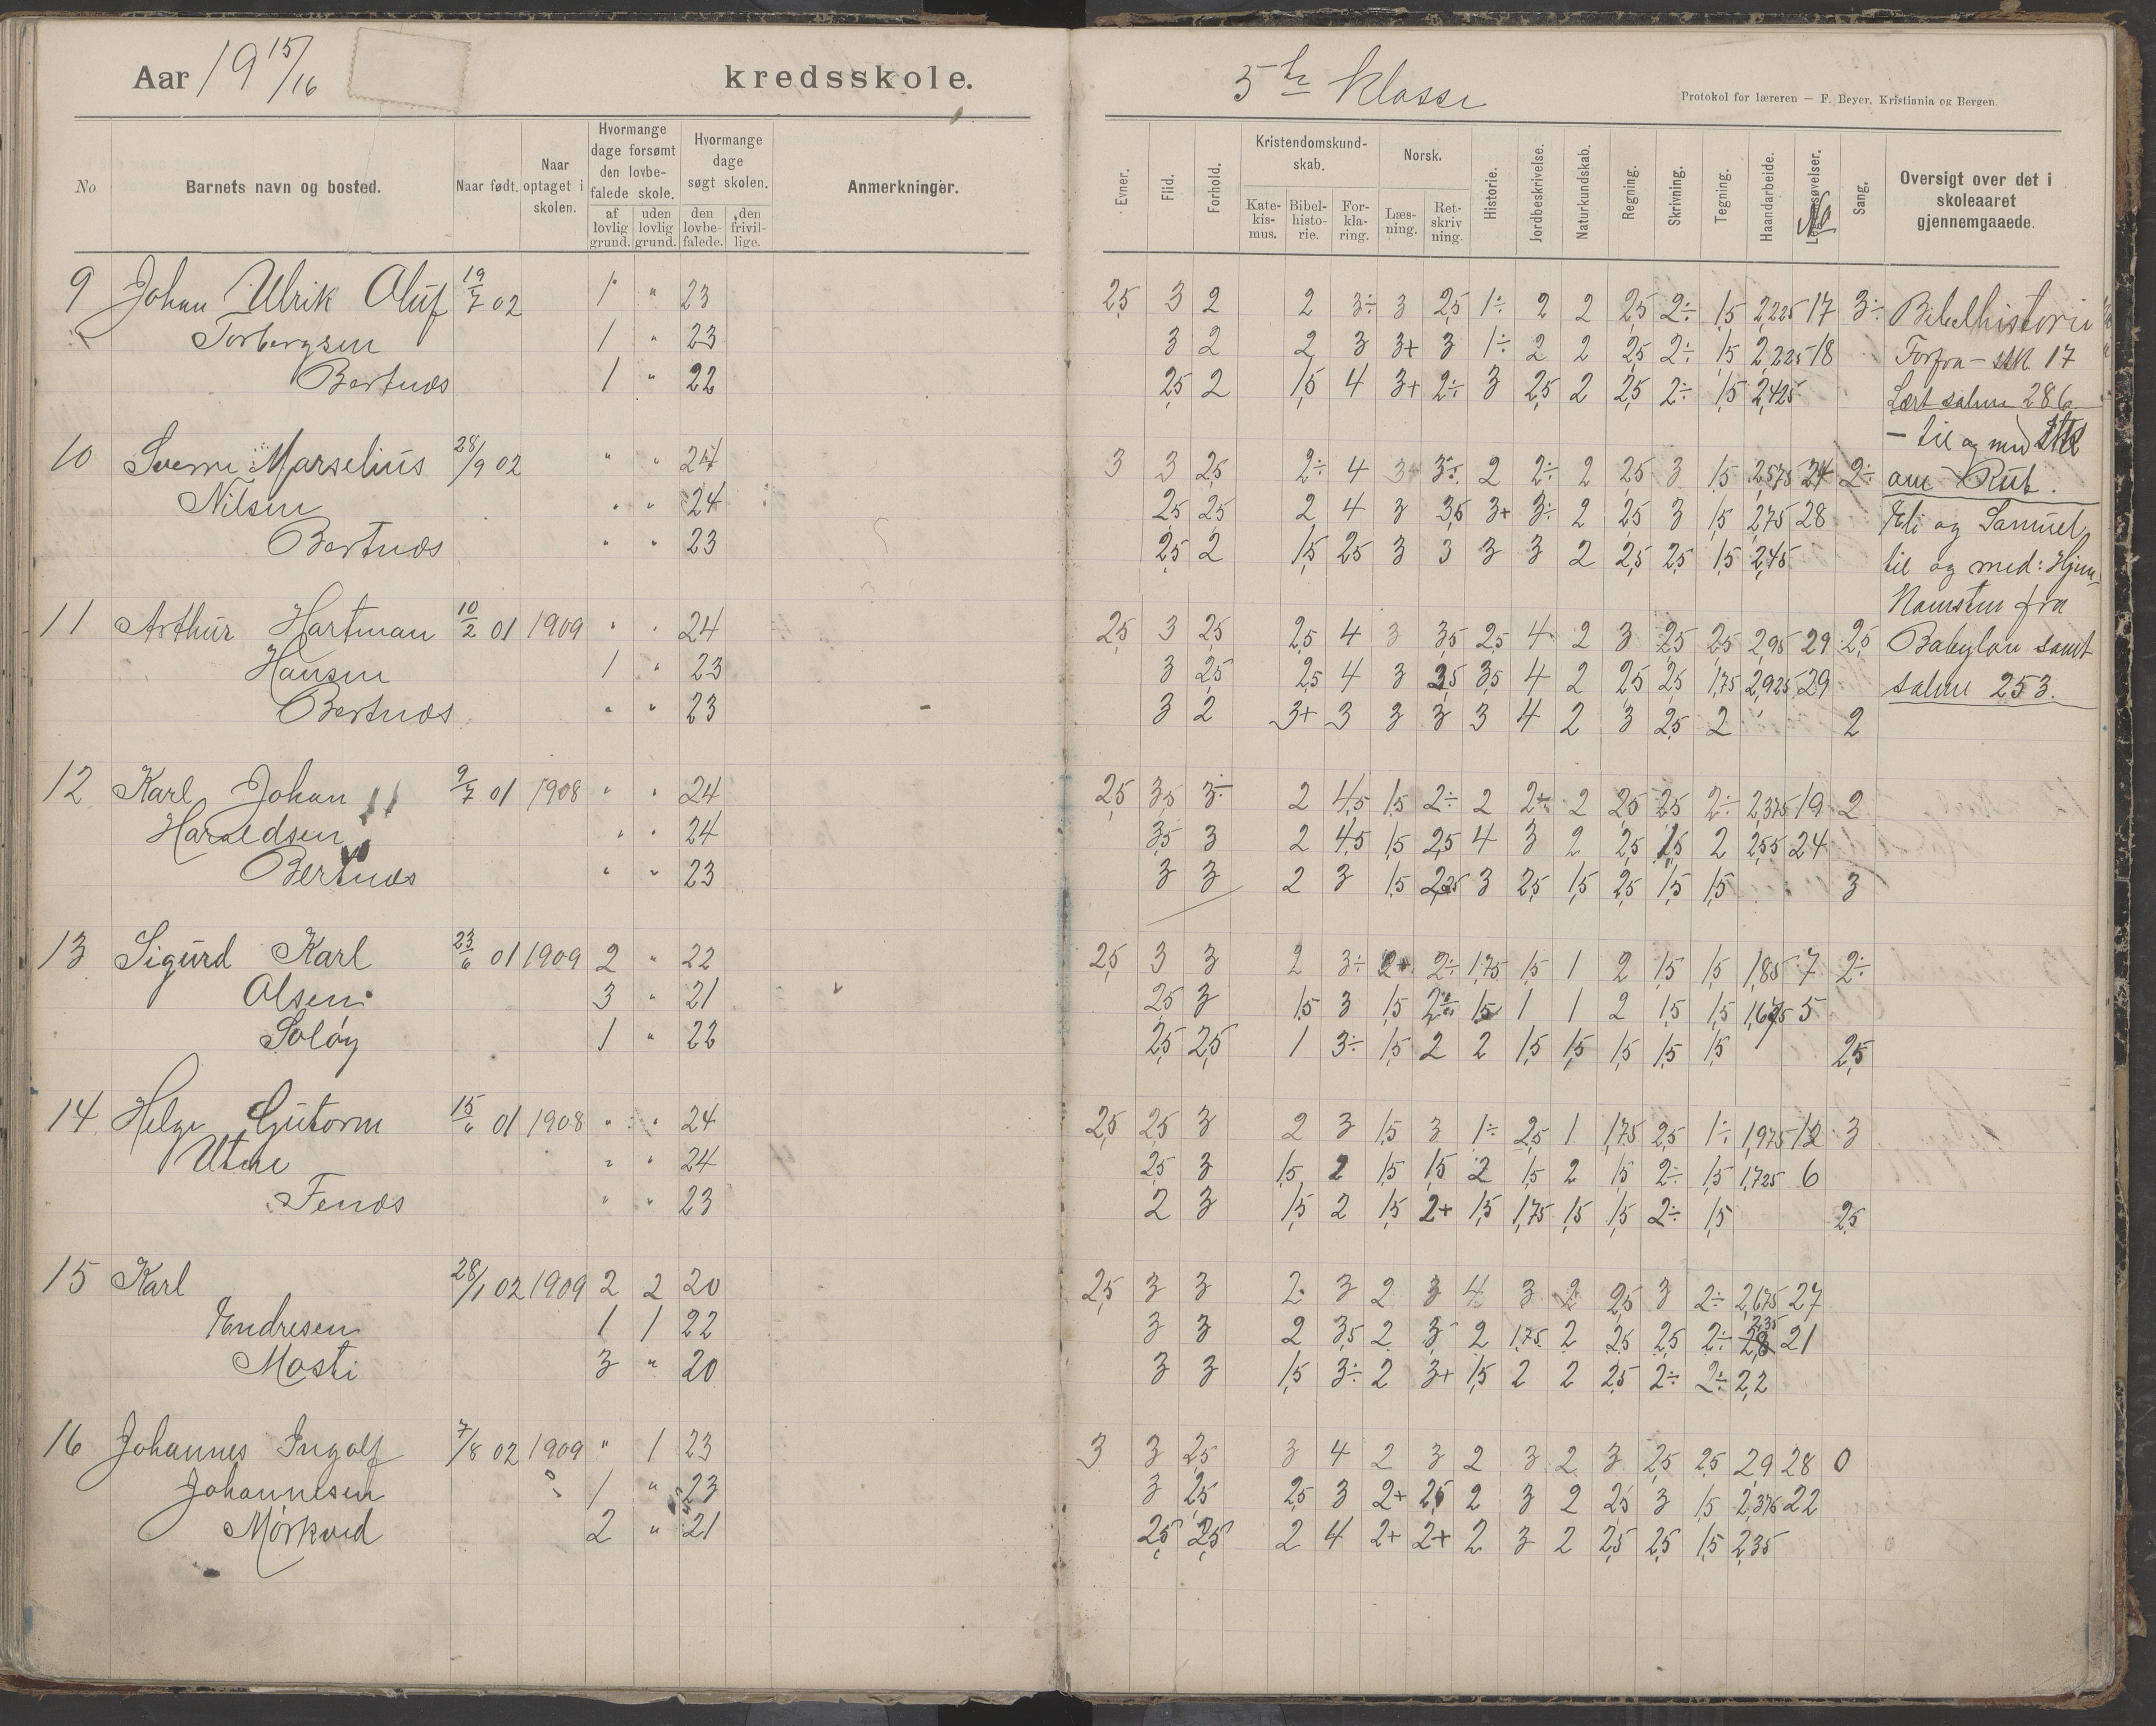 Aar 19 15/16 kredsskole.
No
Barnets navn og bosted.
Naar født.
Naar optaget i skolen.
Hvormange dage forsømt den lovbefalede skole.
af lovlig grund.
uden lovlig grund.
Hvormange dage søgt skolen.
den lovbefalede.
den frivillige.
Anmerkninger.
9 Johan Ulrik Oluf 19/7 02 1 " 23
Torbergsen 1 " 23
Bertnæs 1 " 22
10 Sverre Marselius 28/9 02 " " 24
Nilsen " " 24
Bertnæs " " 23
11 Arthur Hartman 10/2 01 1909 " " 24
Hansen 1 " 23
Bertnæs " " 23
12 Karl Johan 9/7 01 1908 " " 24
Haraldsen " " 24
Bertnæs " " 23
13 Sigurd Karl 23/6 01 1909 2 " 22
Olsen 3 " 21
Soløy 1 " 22
14 Helge Gutorm 15/6 01 1908 " " 24
Utne " " 24
Fenæs " " 23
15 Karl 28/1 02 1909 2 2 20
Endresen 1 1 22
Mosti 3 " 20
16 Johannes Ingolf 7/8 02 1909 " 1 23
Johannesen 1 " 23
Mørkved 2 " 21
5te Klasse
Protokol for læreren — F. Beyer, Kristiania og Bergen.
Evner.
Flid.
Forhold.
Kristendomskundskab.
Katekismus.
Bibelhistorie.
Forklaring.
Norsk.
Læsning.
Retskrivning.
Historie.
Jordbeskrivelse.
Naturkundskab.
Regning.
Skrivning.
Tegning.
Haandarbeide.
No
Sang.
Oversigt over det i skoleaaret gjennemgaaede.
2,5 3 2 2 3÷ 3 2,5 1÷ 2 2 2,5 2÷ 1,5 2,225 17 3÷
3 2 2 3 3+ 3 1÷ 2 2 2,5 2÷ 1,5 2,225 18
2,5 2 1,5 4 3+ 2÷ 3 2,5 2 2,5 2÷ 1,5 2,425
3 3 2,5 2÷ 4 3 3÷ 2 2÷ 2 2,5 3 1,5 2,575 24 2÷
2,5 2,5 2 4 3 3,5 3+ 3÷ 2 2,5 3 1,5 2,75 28
2,5 2 1,5 2,5 3 3 3 3 2 2,5 2,5 1,5 2,45
2,5 3 2,5 2,5 4 3 3,5 2,5 4 2 3 2,5 2,5 2,95 29 2,5
3 2,5 2,5 4 3 3,5 3,5 4 2 2,5 2,5 1,75 2,925 29
3 2 3+ 3 3 3 3 4 2 3 2,5 2 2
2,5 3,5 3÷ 2 4,5 1,5 2÷ 2 2÷ 2 2,5 2,5 2÷ 2,375 19 2
3,5 3 2 4,5 1,5 2,5 4 3 2 2,5 1,5 2 2,55 24
3 3 2 3 1,5 2,25 3 2,5 1,5 2,5 1,5 1,5 3
2,5 3 3 2 3÷ 2+ 2÷ 1,75 1,5 1 2 1,5 1,5 1,85 7 2÷
2,5 3 1,5 3 1,5 2÷ 1,5 1 1 2 1,5 1,5 1,675 5
2,5 2,5 1 3÷ 1,5 2 2 1,5 1,5 1,5 1,5 1,5 2,5
2,5 2,5 3 2 3 1,5 3 1÷ 2,5 1 1,75 2,5 1÷ 1,975 12 3
2,5 3 1,5 2 1,5 1,5 2 1,5 2 1,5 2÷ 1,5 1,725 6
2 3 1,5 2 1,5 2+ 1,5 1,75 1,5 1,5 2÷ 1,5 2,5
2,5 3 3 2 3 2 3 4 3 2 2,5 3 2÷ 2,675 27
3 3 2 3,5 2 3 2 1,75 2 2,5 2,5 2÷ 2,35 21
3 3 1,5 3÷ 2 3+ 1,5 2 2 2,5 2÷ 2÷ 2,2
3 3 2,5 3 4 2 3 2 3 2 3 2,5 2,5 2,9 28 0
3 2,5 2,5 3 2+ 2,5 2 3 2 2,5 3 1,5 2,375 22
2,5 2,5 2 4 2+ 2+ 2 3 2 2,5 2,5 1,5 2,35
Bibelhistorie
Forfra – stk 17
Lært salme 286
– til og med Stk
om Rut.
Eli og Samuel
til og med: Hjem-
komsten fra
Babylon samt
salme 253.